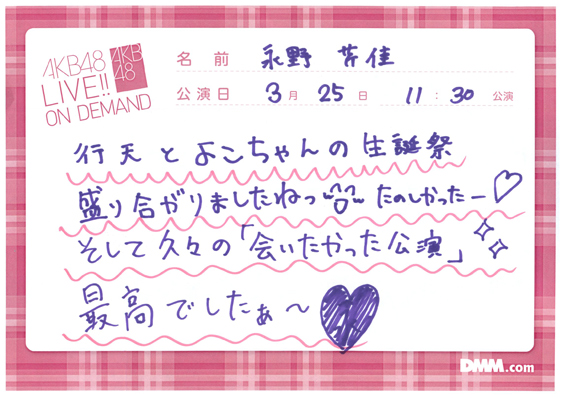 AKB48
LIVE!!
ON DEMAND
AKB
48
名前 永野 芹佳
公演日 3月 25日 11:30 公演
行天とよこちゃんの生誕祭
盛り合がりましたねっ たのしかったー♡
そして久々の「会いたかった公演」
最高でしたぁ〜
DMM.com